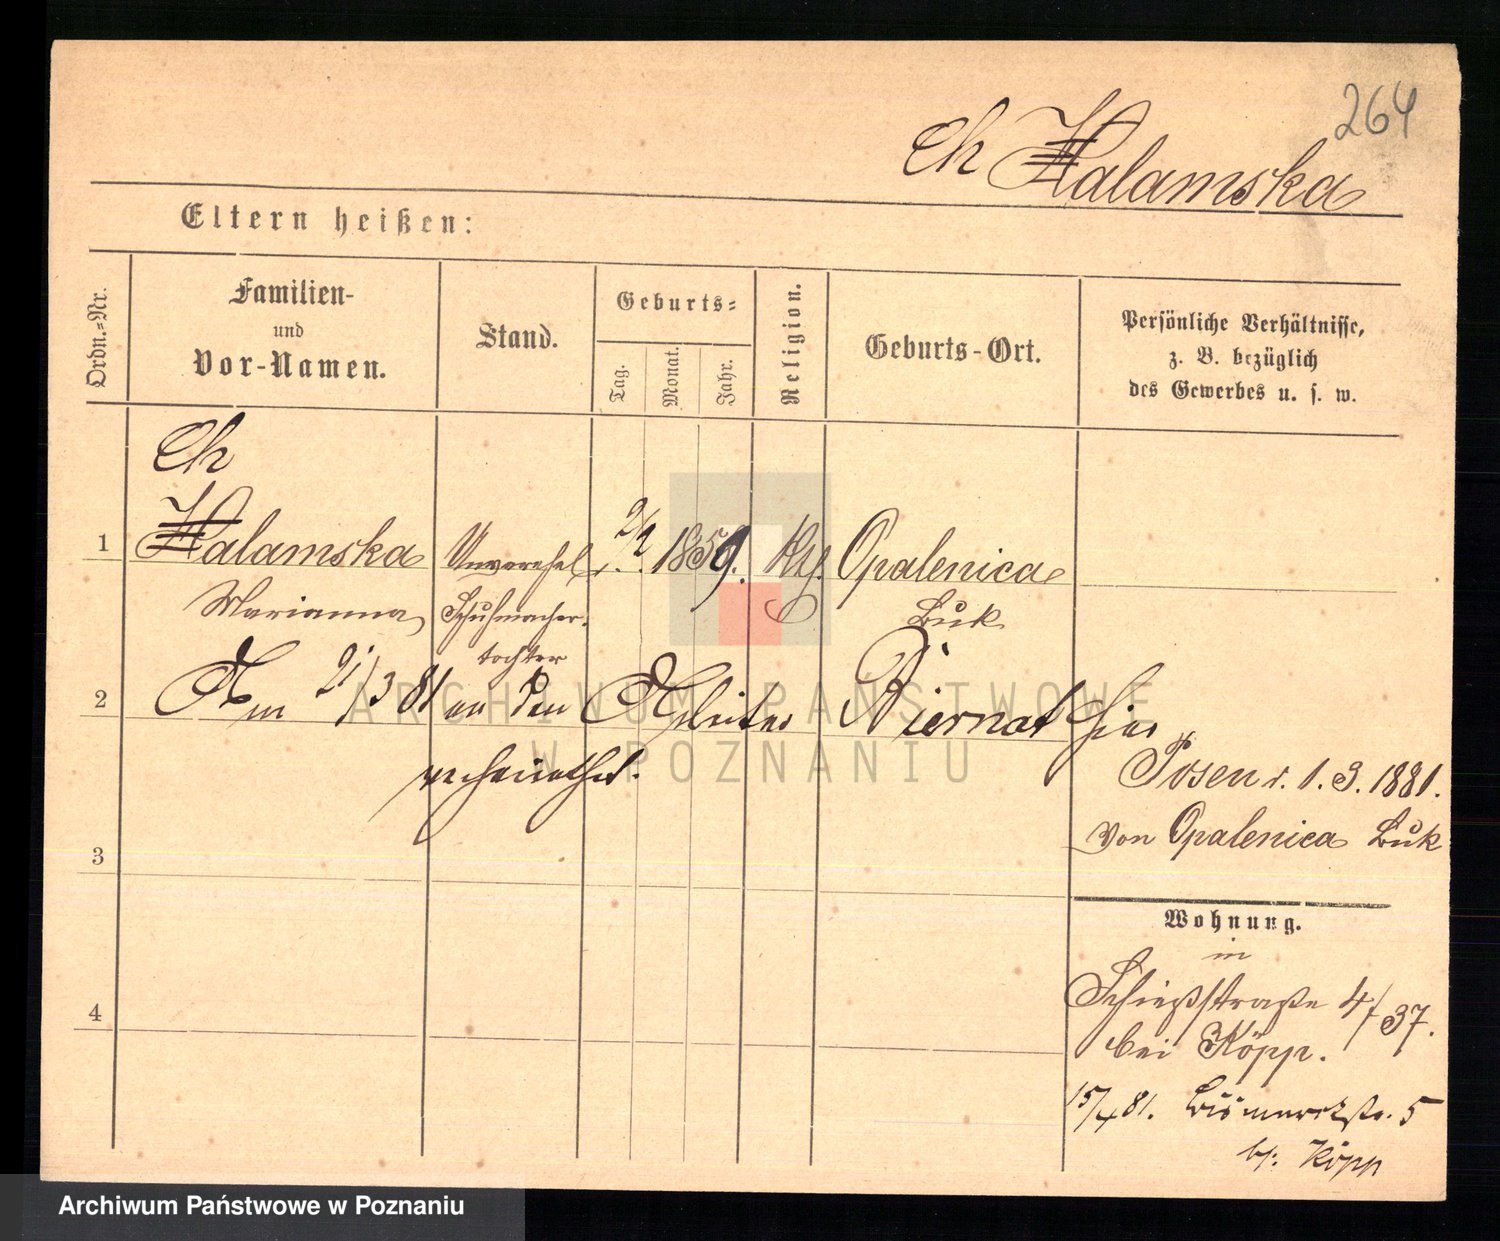 264
Ch Halamska
Eltern heißen:
Ordn.-Nr.
Familien-
und
Vor-Namen.
Stand.
Geburts-
Tag.
Monat.
Jahr.
Religion.
Geburts-Ort.
Persönliche Verhältnisse,
z. B. bezüglich
des Gewerbes u. s. w.
Ch
1 Halamska Unverehel. 2/2 1859. Kth. Opalenica
Marianna Schuhmacher-
tochter
Buk
2 Am 21/3 81 an den Arbeiter Biernat hier
verheirathet.
Posen d. 1. 3. 1881.
von Opalenica Buk
3
Wohnung.
in
4
Schießstraße 4/37.
bei Köpp.
15/4 81. Bismarckstr. 5
b. Köpp
ARCHIWUM PAŃSTWOWE
W POZNANIU
Archiwum Państwowe w Poznaniu